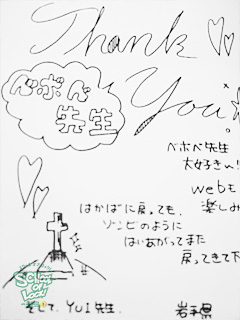 Thank
You
べボベ
先生
べボベ先生
大好きん!
webも
楽しみ
はかばに戻っても、
ゾンビのように
はいあがってまた
戻ってきて下
そして、YUI先生.
岩手県
SCHOOL
OF
LOCK!